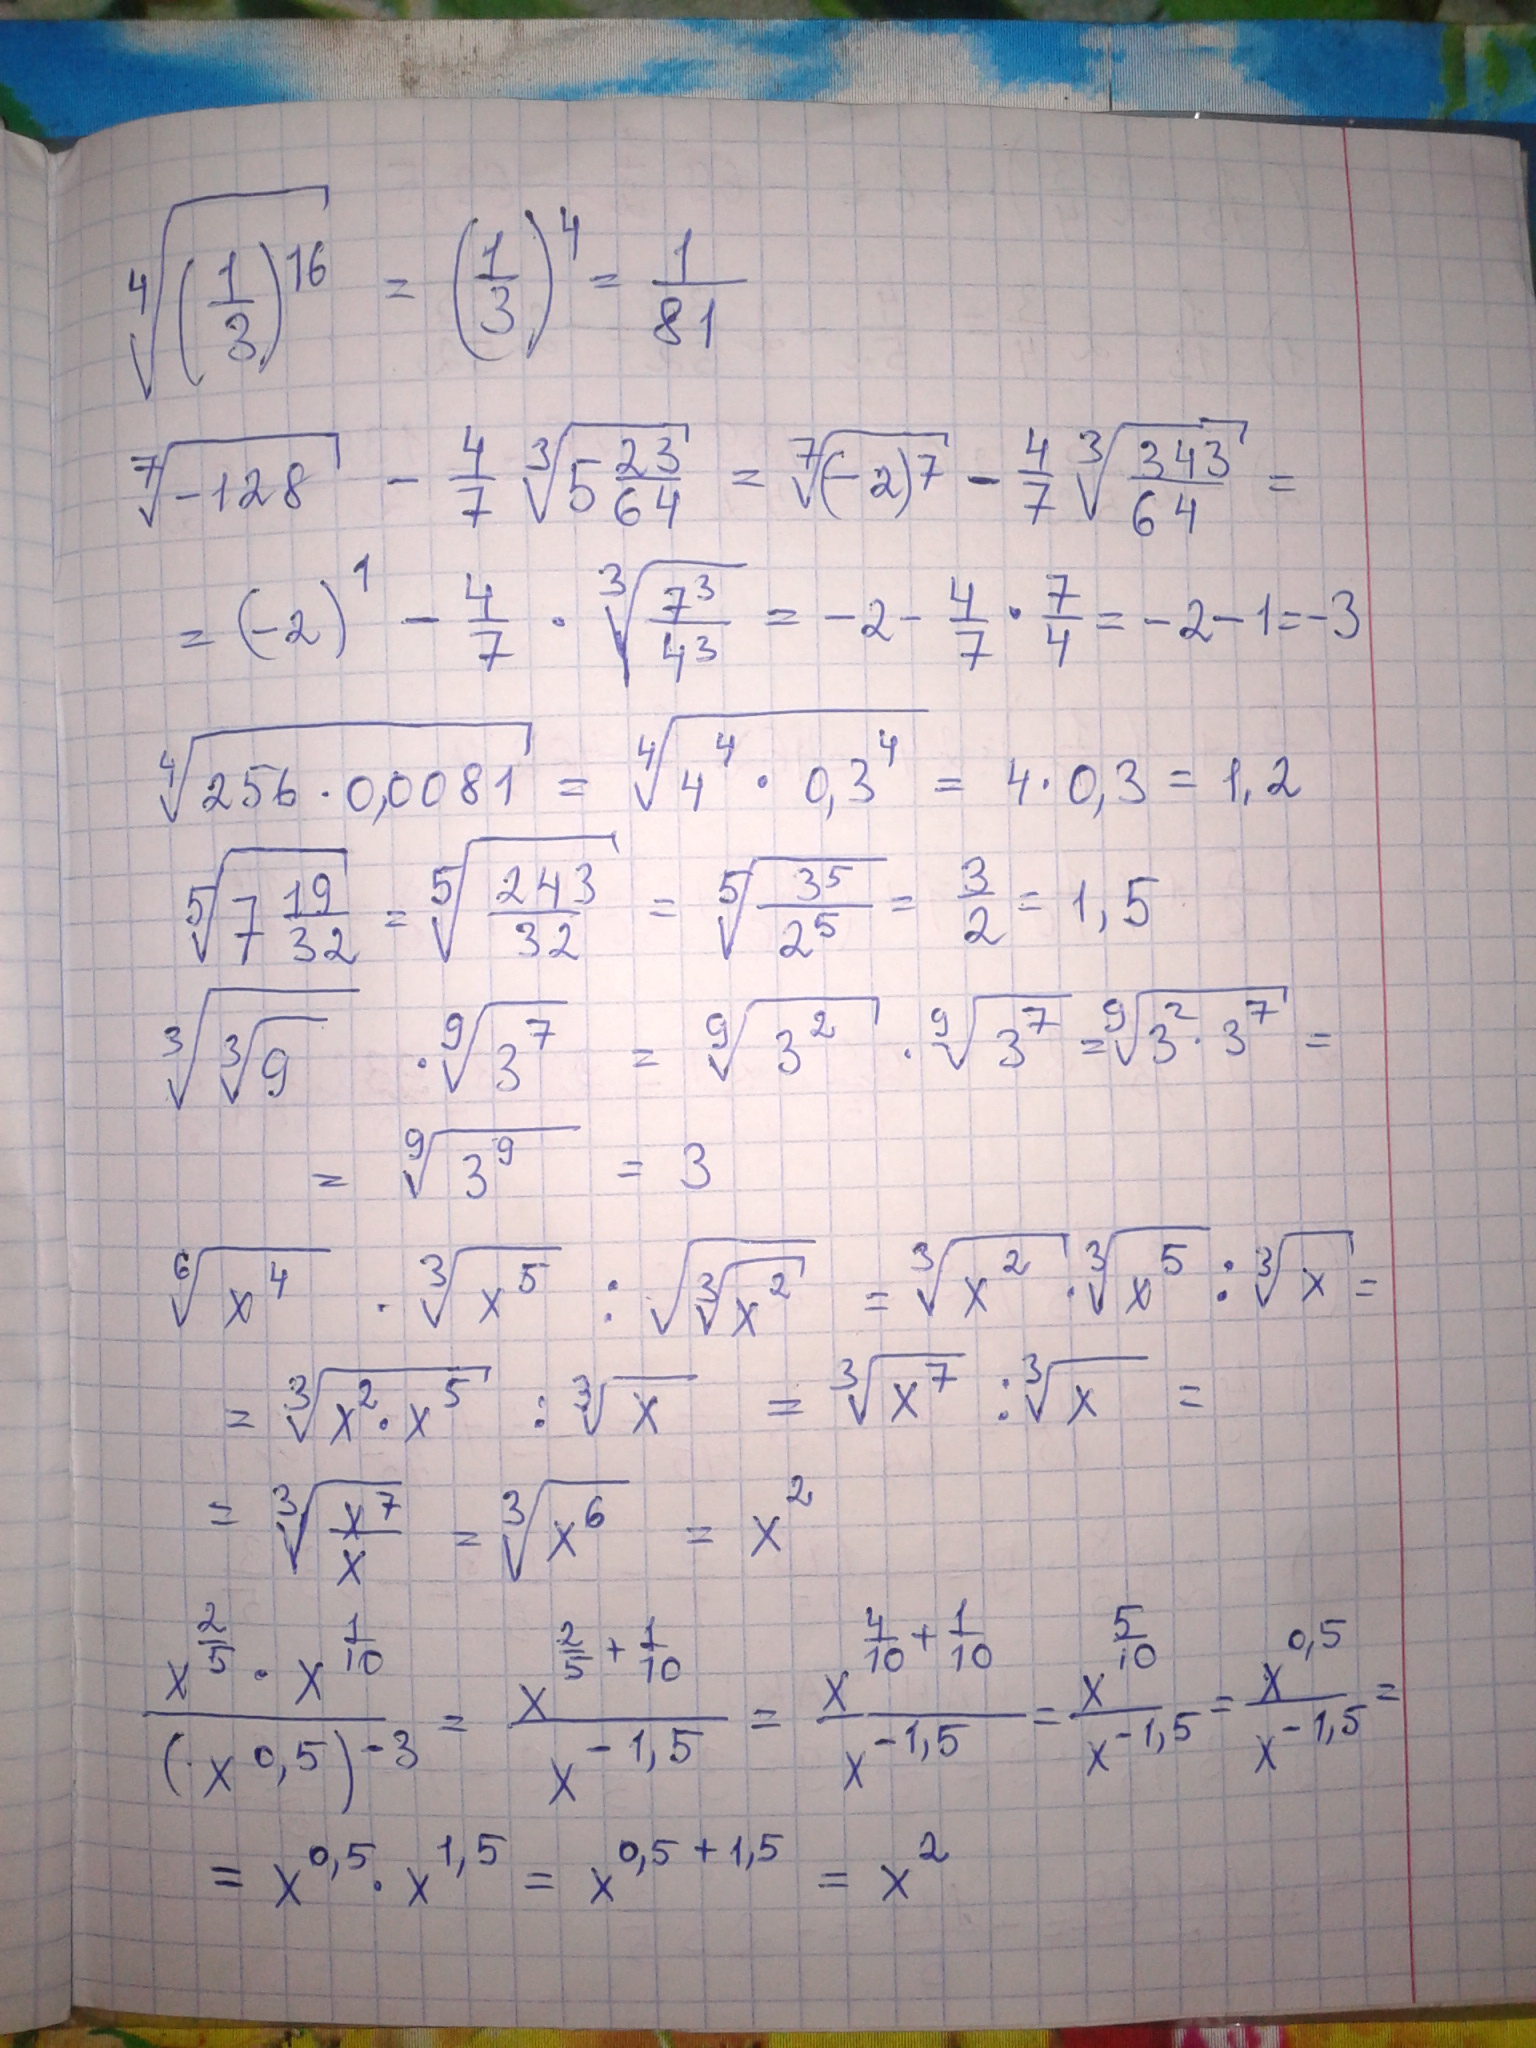 ⁴√((1/3)^16) = (1/3)^4 = 1/81
⁷√(-128) - 4/7 ³√(5 23/64) = ⁷√((-2)^7) - 4/7 ³√(343/64) =
= (-2)^1 - 4/7 · ³√(7^3/4^3) = -2 - 4/7 · 7/4 = -2 - 1 = -3
⁴√(256 · 0,0081) = ⁴√(4^4 · 0,3^4) = 4 · 0,3 = 1,2
⁵√(7 19/32) = ⁵√(243/32) = ⁵√(3^5/2^5) = 3/2 = 1,5
³√(³√9) · ⁹√(3^7) = ⁹√(3^2) · ⁹√(3^7) = ⁹√(3^2 · 3^7) =
= ⁹√(3^9) = 3
⁶√(x^4) · ³√(x^5) : √(³√(x^2)) = ³√(x^2) · ³√(x^5) : ³√x =
= ³√(x^2 · x^5) : ³√x = ³√(x^7) : ³√x =
= ³√(x^7/x) = ³√(x^6) = x^2
(x^(2/5) · x^(1/10))/((x^0,5)^-3) = x^(2/5 + 1/10)/x^(-1,5) = x^(4/10 + 1/10)/x^(-1,5) = x^(5/10)/x^(-1,5) = x^0,5/x^(-1,5) =
= x^0,5 · x^1,5 = x^(0,5 + 1,5) = x^2